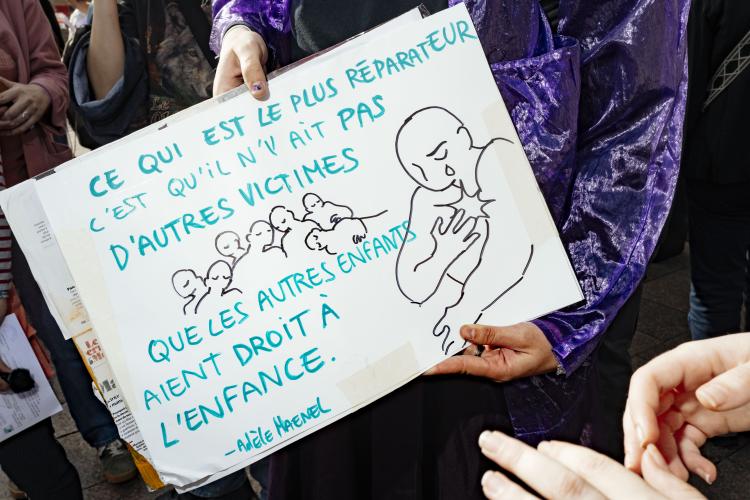 CE QUI EST LE PLUS RÉPARATEUR
C'EST QU'IL N'Y AIT PAS
D'AUTRES VICTIMES
QUE LES AUTRES ENFANTS
AIENT DROIT À
L'ENFANCE.
- Adèle HAENEL